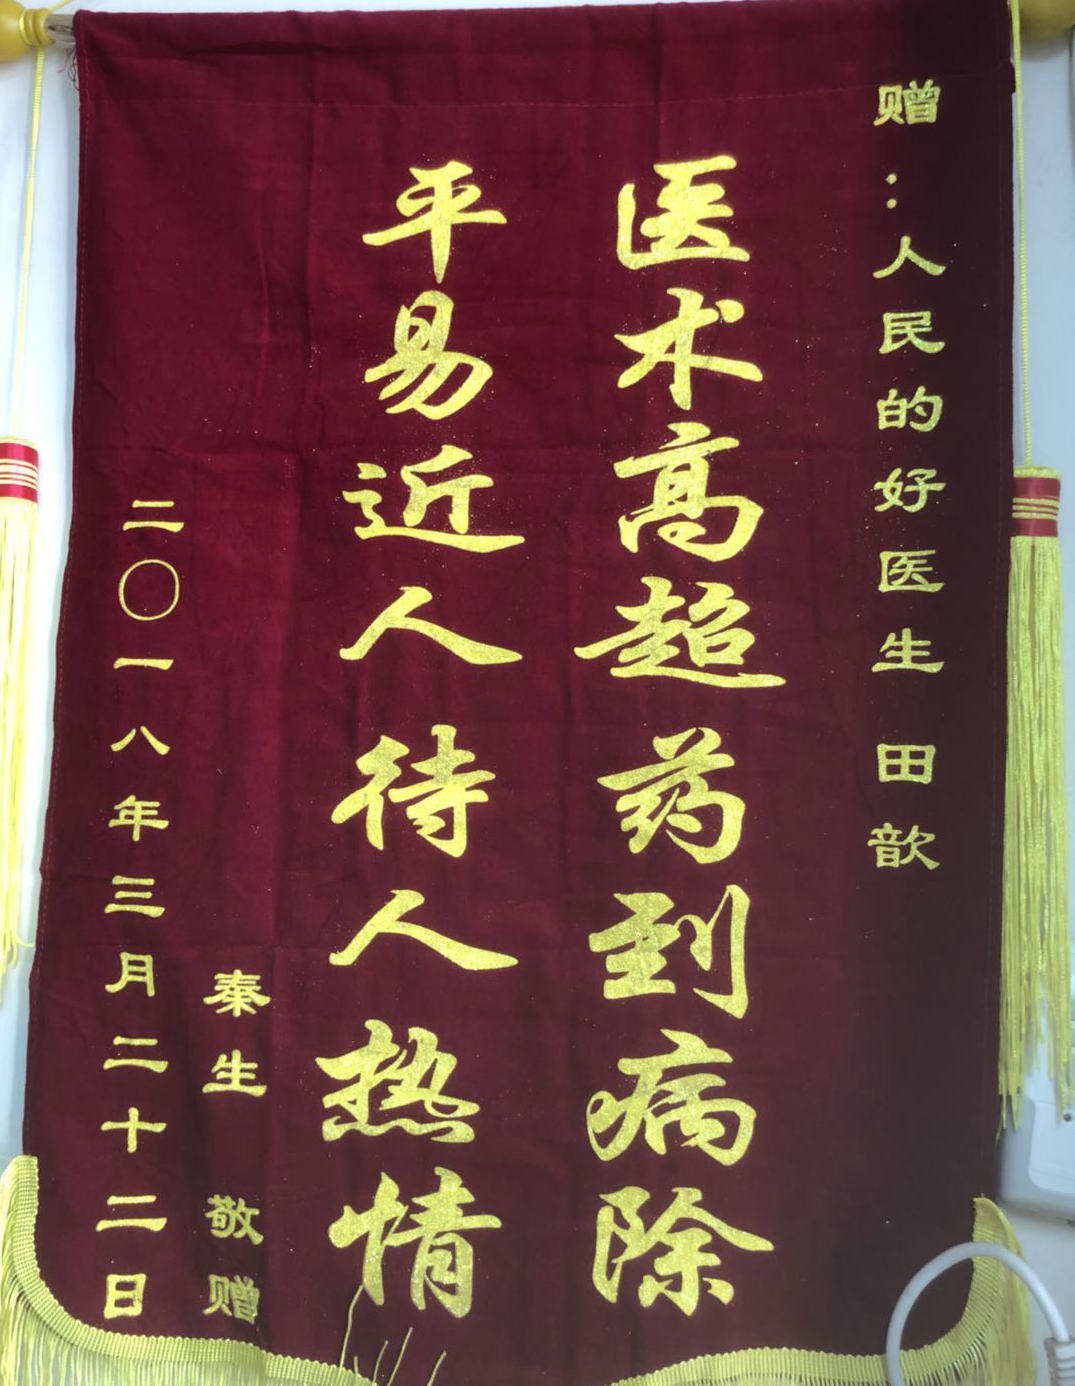 赠：人民的好医生 田歆
医术高超药到病除
平易近人待人热情
秦生 敬赠
二〇一八年三月二十二日